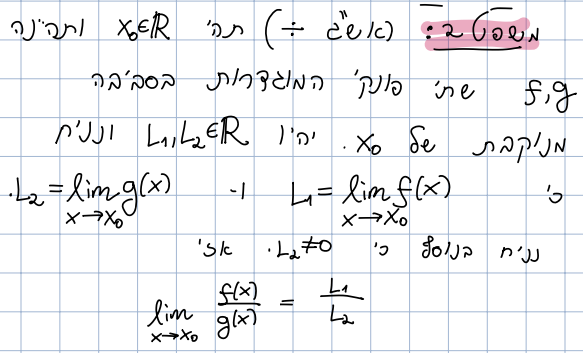 משפט 2: (אש"ג ÷) תהי x₀∈ℝ ותהיינה
f,g שתי פונק' המוגדרות בסביבה
מנוקבת של x₀. יהיו L₁,L₂∈ℝ ונניח
כי L₁ = lim_{x→x₀} f(x) ו- L₂ = lim_{x→x₀} g(x).
נניח בנוסף כי L₂≠0. אזי
lim_{x→x₀} f(x)/g(x) = L₁/L₂